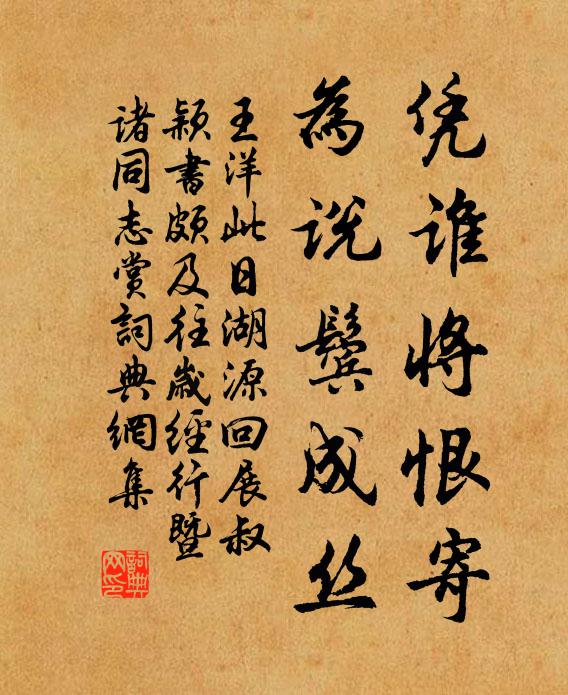 凭谁将恨寄
為説鬓成丝
王洋此日湖源回展叔
颖書颇及往歳經行暨
诸同志赏詞典網集
詞典网印